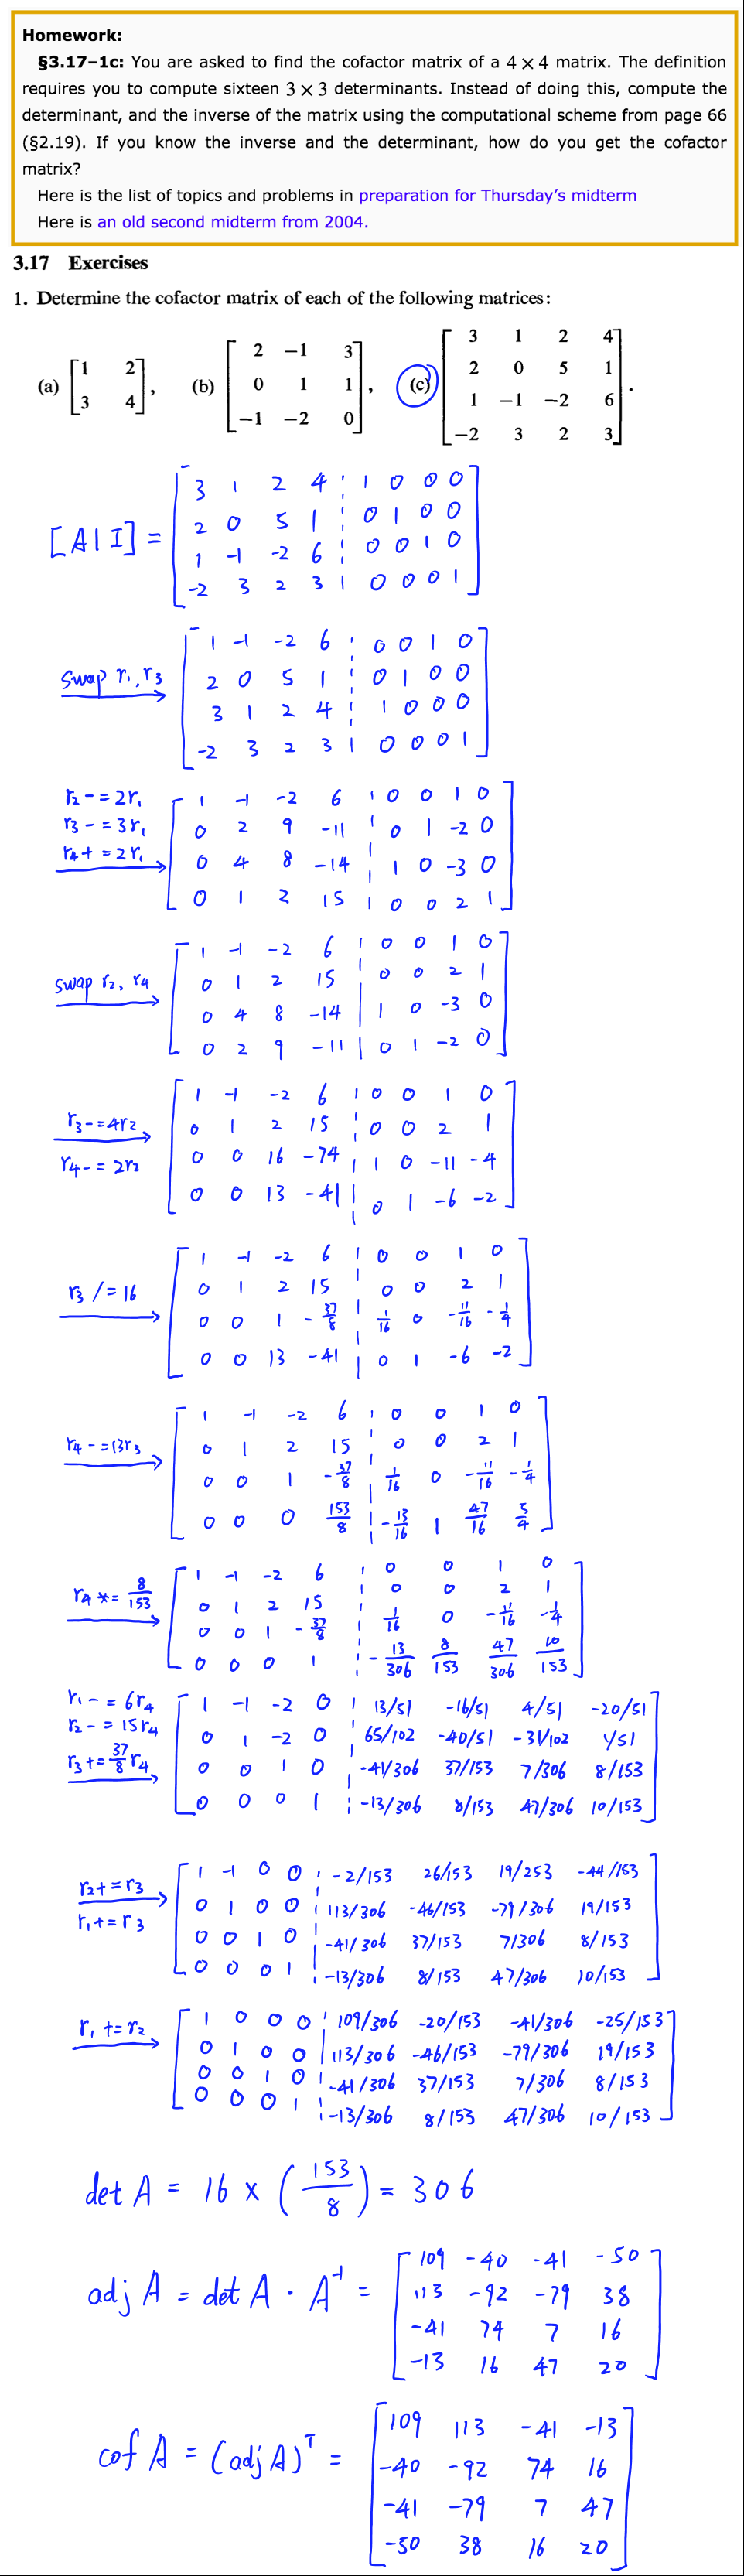 Homework:
§3.17–1c: You are asked to find the cofactor matrix of a 4 × 4 matrix. The definition
requires you to compute sixteen 3 × 3 determinants. Instead of doing this, compute the
determinant, and the inverse of the matrix using the computational scheme from page 66
(§2.19). If you know the inverse and the determinant, how do you get the cofactor
matrix?
Here is the list of topics and problems in preparation for Thursday's midterm
Here is an old second midterm from 2004.
3.17 Exercises
1. Determine the cofactor matrix of each of the following matrices:
(a) [1 2; 3 4], (b) [2 −1 3; 0 1 1; −1 −2 0], (c) [3 1 2 4; 2 0 5 1; 1 −1 −2 6; −2 3 2 3].
[A|I] =
3 1 2 4 | 1 0 0 0
2 0 5 1 | 0 1 0 0
1 -1 -2 6 | 0 0 1 0
-2 3 2 3 | 0 0 0 1
Swap r1, r3
1 -1 -2 6 | 0 0 1 0
2 0 5 1 | 0 1 0 0
3 1 2 4 | 1 0 0 0
-2 3 2 3 | 0 0 0 1
r2 -= 2r1
r3 -= 3r1
r4 += 2r1
1 -1 -2 6 | 0 0 1 0
0 2 9 -11 | 0 1 -2 0
0 4 8 -14 | 1 0 -3 0
0 1 2 15 | 0 0 2 1
swap r2, r4
1 -1 -2 6 | 0 0 1 0
0 1 2 15 | 0 0 2 1
0 4 8 -14 | 1 0 -3 0
0 2 9 -11 | 0 1 -2 0
r3 -= 4r2
r4 -= 2r2
1 -1 -2 6 | 0 0 1 0
0 1 2 15 | 0 0 2 1
0 0 16 -74 | 1 0 -11 -4
0 0 13 -41 | 0 1 -6 -2
r3 /= 16
1 -1 -2 6 | 0 0 1 0
0 1 2 15 | 0 0 2 1
0 0 1 -37/8 | 1/16 0 -11/16 -1/4
0 0 13 -41 | 0 1 -6 -2
r4 -= 13r3
1 -1 -2 6 | 0 0 1 0
0 1 2 15 | 0 0 2 1
0 0 1 -37/8 | 1/16 0 -11/16 -1/4
0 0 0 153/8 | -13/16 1 47/16 5/4
r4 *= 8/153
1 -1 -2 6 | 0 0 1 0
0 1 2 15 | 0 0 2 1
0 0 1 -37/8 | 1/16 0 -11/16 -1/4
0 0 0 1 | -13/306 8/153 47/306 10/153
r1 -= 6r4
r2 -= 15r4
r3 += 37/8 r4
1 -1 -2 0 | 13/51 -16/51 4/51 -20/51
0 1 -2 0 | 65/102 -40/51 -31/102 1/51
0 0 1 0 | -41/306 37/153 7/306 8/153
0 0 0 1 | -13/306 8/153 47/306 10/153
r2 += r3
r1 += r3
1 -1 0 0 | -2/153 26/153 19/253 -44/153
0 1 0 0 | 113/306 -46/153 -79/306 19/153
0 0 1 0 | -41/306 37/153 7/306 8/153
0 0 0 1 | -13/306 8/153 47/306 10/153
r1 += r2
1 0 0 0 | 109/306 -20/153 -41/306 -25/153
0 1 0 0 | 113/306 -46/153 -79/306 19/153
0 0 1 0 | -41/306 37/153 7/306 8/153
0 0 0 1 | -13/306 8/153 47/306 10/153
det A = 16 × (153/8) = 306
adj A = det A · A⁻¹ =
109 -40 -41 -50
113 -92 -79 38
-41 74 7 16
-13 16 47 20
cof A = (adj A)ᵀ =
109 113 -41 -13
-40 -92 74 16
-41 -79 7 47
-50 38 16 20